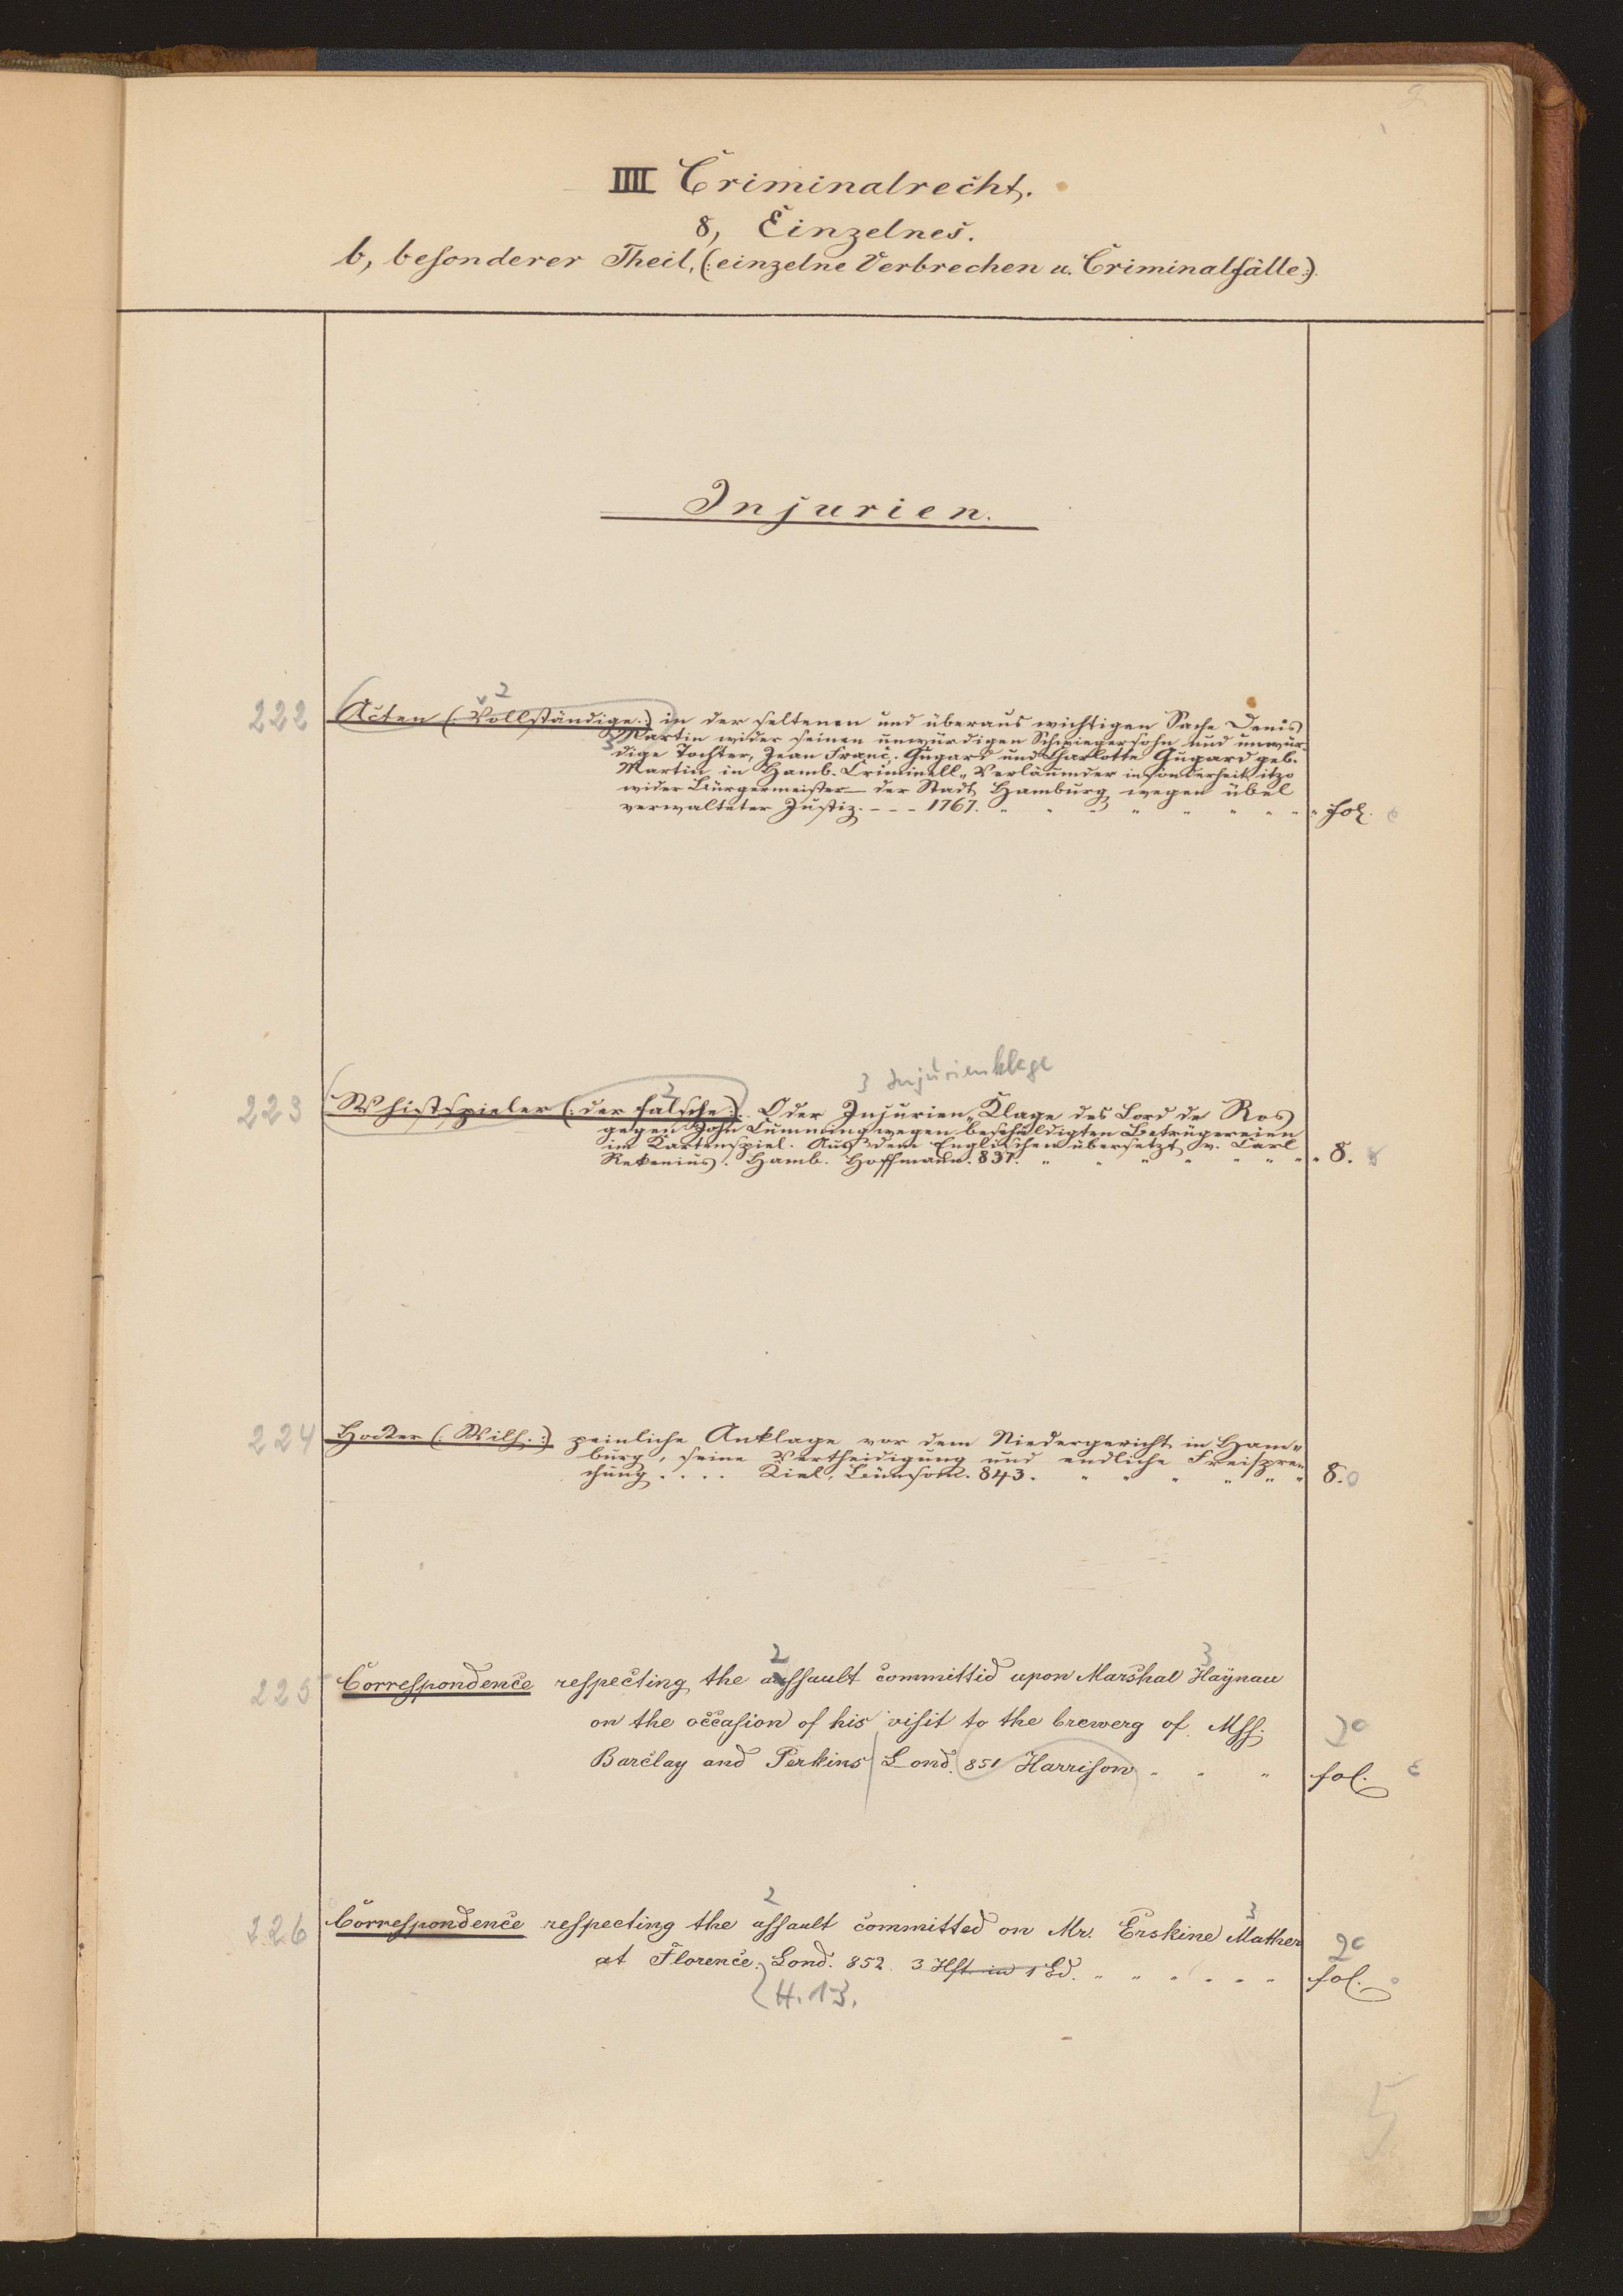 2
IIII Criminalrecht.
8, Einzelnes.
b, besonderer Theil, (: einzelne Verbrechen u. Criminalfälle :)
Injurien.
2
222 Acten (: Vollständige :) in der seltenen und überaus wichtigen Sache Denis
3 Martin wider seinen unwürdigen Schwiegersohn und unwür-
dige Tochter, Jean Franc. Gugard und Charlotte Gugard geb.
Martin in Hamb. Criminell-Verläumder insonderheit itzo
wider Bürgermeister der Stadt Hamburg wegen übel
verwalteter Justiz. - - - 1767. " " " " " " " " fol.
3 Injurienklage
2
223 Whistspieler (: der falsche :). Oder Injurien-Klage des Lord de Ros
gegen John Cumming wegen beschuldigten Betrügereien
im Kartenspiel. Aus dem Englischen übersetzt v. Carl
Rekenius. Hamb. Hoffmann. 837. " " " " " " " " 8. 8
224 Hocker (: Wilh. :) peinliche Anklage vor dem Niedergericht in Ham-
burg, seine Vertheidigung und endliche Freispre-
chung . . . . Kiel, Bünsow. 843. " " " " " " 8.
2 3
225 Correspondence respecting the assault committid upon Marshal Haÿnau
on the occasion of his visit to the brewerg of Mss. 20
Barclay and Perkins Lond. 851 Harrison " " " fol.
2 3
226 Correspondence respecting the assault committed on Mr. Erskine Mather
at Florence. Lond. 852. 3 Hft. in 1 Bd. " " " " " " 20 fol.
H. 1-3.
5